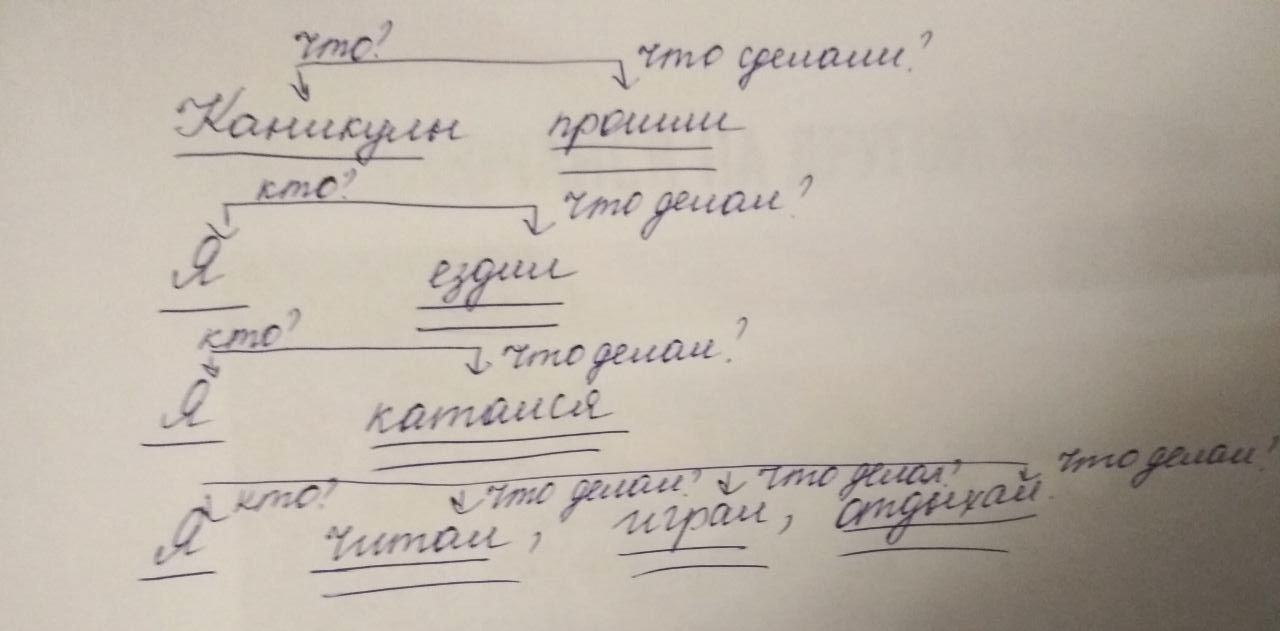 что? что сделали?
Каникулы прошли
кто? что делал?
Я ездил
кто? что делал?
Я катался
кто? что делал? что делал? что делал?
Я читал, играл, отдыхал.